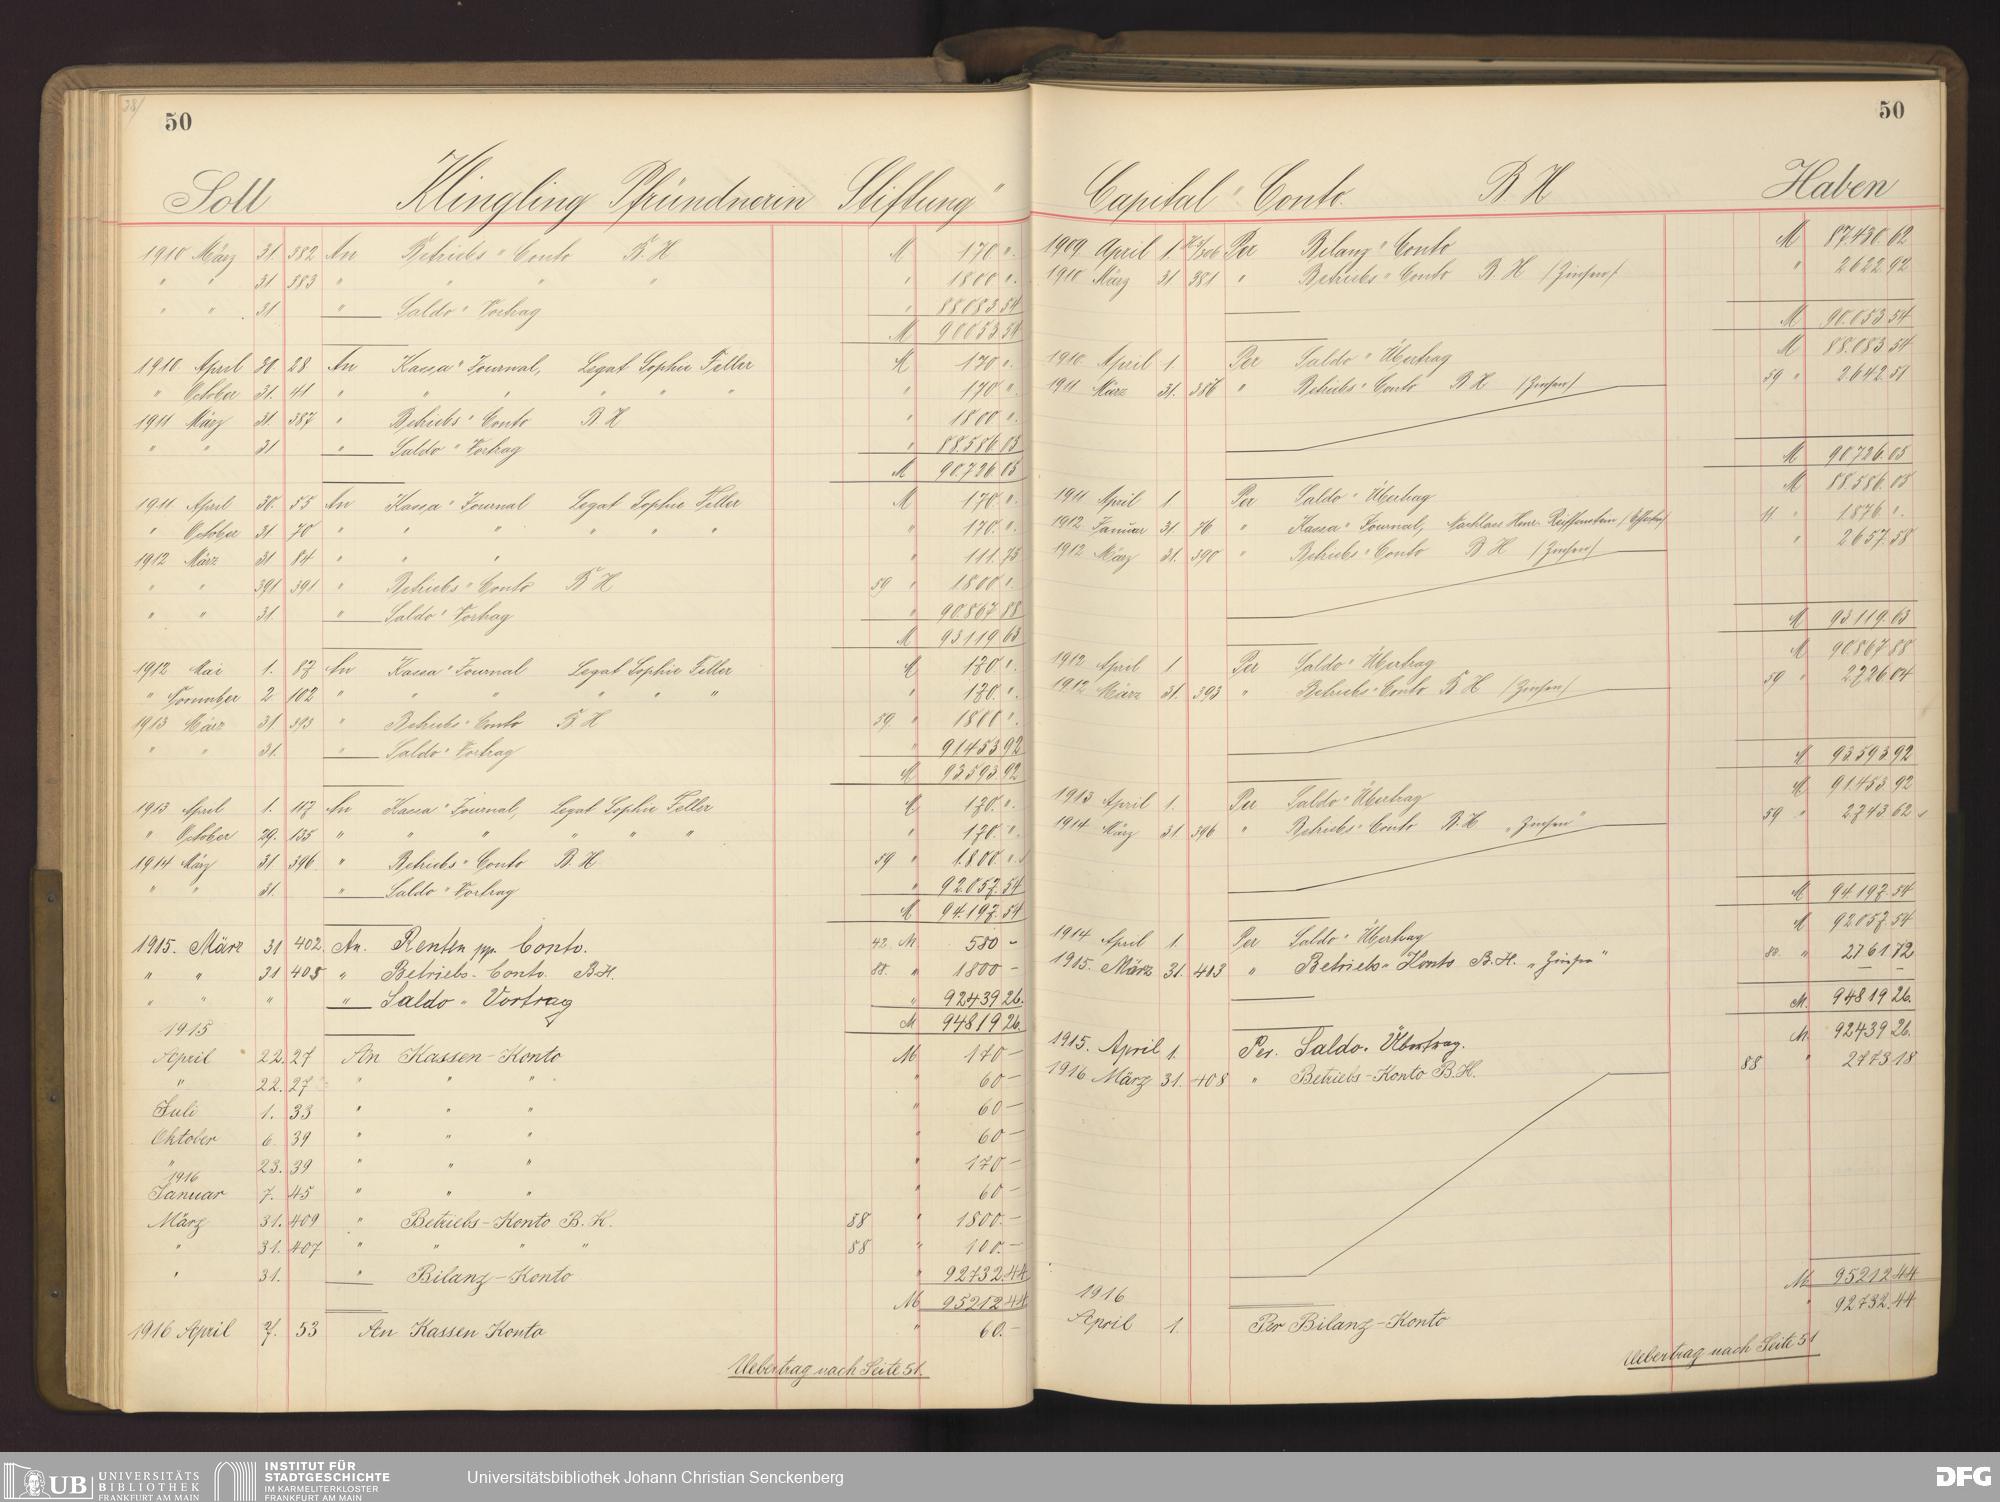 50
Soll Klingling Pfründnerin Stiftung"
1910 März 31. 382 An Betriebs " Conto B. H M 170 ".
" " 31 383 " " " " " 1800 ".
" " 31 " Saldo " Vortrag " 88083.54
M 90053.54
1910 April 30. 28 An Kassa " Journal, Legat Sophie Feller M 170 ".
" October 31. 41 " " " " " " " 170 ".
1911 März 31. 387 " Betriebs " Conto B H " 1800 ".
" " 31 " Saldo " Vortrag " 88.586.05
M 90.726.05
1911 April 30. 55 An Kassa " Journal Legat Sophie Feller M 170 ".
" October 31 70 " " " " " " " 170. ".
1912 März 31 84 " " " " 111.75
" " 391 391 " Betriebs " Conto B H 59 " 1800 ".
" " 31. " Saldo " Vortrag " 90.867.88
M 93119.63
1912 Mai 1. 87 An Kassa " Journal Legat Sophie Feller M 170 ".
" November 2 102 " " " " " " " 170. ".
1913 März 31. 393 " Betriebs " Conto B H 59. " 1800 ".
" " 31. " Saldo " Vortrag " 91453.92
M 93593.92
1913 April 1. 117 An Kassa " Journal, Legat Sophie Feller M 170. ".
" October 29. 135 " " " " " " " 170. ".
1914 März 31. 396 " Betriebs " Conto B. H 59 " 1.800. ".
" " 31. " Saldo " Vortrag " 92.057.54
M 94.197.54
1915. März 31 402. An. Renten pp. Conto. 42 M 580 -
" " 31 405 " Betriebs - Conto. B.H. 88. " 1800 -
" " " " Saldo " Vortrag " 92439 26.
M 94819 26.
1915
April 22. 27 An Kassen-Konto M 170 -
" 22. 27 " " " " 60 -
Juli 1. 33 " " " " 60 -
Oktober 6. 39 " " " " 60 -
" 23. 39 " " " " 170 -
1916
Januar 7. 45 " " " " 60 -
März 31. 409 " Betriebs-Konto B. H. 88 " 1800. -
" 31. 407 " " " " 88 " 100. -
" 31. " Bilanz-Konto " 92732.44
M 95212.44
1916 April 53 An Kassen Konto " 60. -
Uebertrag nach Seite 51.
50
Capital " Conto B H Haben
1909 April 1. Per Bilanz " Conto M 87430.62
1910 März 31 381 " Betriebs " Conto B. H /Zinsen/ " 2622.92
M 90.053.54
1910 April 1. Per Saldo " Übertrag M 88.083.54
1911 März 31. 386 " Betriebs " Conto B H /Zinsen/ 59 " 2642.51
M 90.726.05
1911 April 1 Per Saldo " Übertrag M 88.586.05
1912 Januar 31. 76 " Kassa " Journal, Nachlass Reiffenstein 11 " 1876 ".
1912 März 31. 390 " Betriebs " Conto B H /Zinsen/ " 2657.58
M 93119.63
1912 April 1 Per Saldo " Übertrag M 90.867.88
1912 März 31. 393 " Betriebs " Conto B H /Zinsen/ 59 " 2726.04
M 93593.92
1913 April 1. Per Saldo " Übertrag M 91.453.92
1914 März 31. 396 " Betriebs " Conto B. H "Zinsen" 59 " 2743.62
M 94.197.54
1914 April 1. Per Saldo " Übertrag M 92057.54
1915. März 31. 403 " Betriebs " Konto B. H. "Zinsen" 80. " 2761 72
M. 94819 26.
1915. April 1. Per. Saldo. Übertrag. M. 92439 26.
1916 März 31. 408 " Betriebs-Konto B.H. 88 " 2773 18
M 95212.44
1916 " 92732.44
April 1. Per Bilanz-Konto
Uebertrag nach Seite 51
UB UNIVERSITÄTS
BIBLIOTHEK
FRANKFURT AM MAIN
INSTITUT FÜR
STADTGESCHICHTE
IM KARMELITERKLOSTER
FRANKFURT AM MAIN
Universitätsbibliothek Johann Christian Senckenberg
DFG